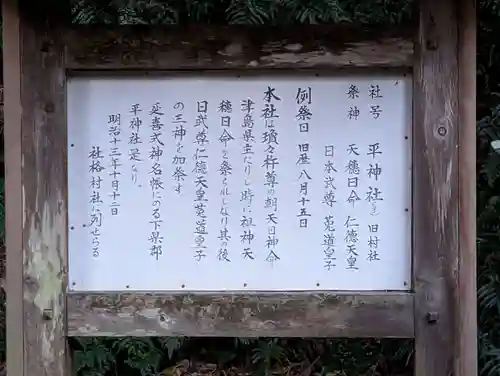 社号 平神社 旧村社
祭神 天穂日命 仁徳天皇
日本武尊 莵道皇子
例祭日 旧暦八月十五日
本社は瓊々杵尊の朝天日神命
津島県主たりし時に祖神天
穂日命を祭られしなり其の後
日武尊仁徳天皇莵道皇子
の三神を加祭す
延喜式神名帳にのる下県郡
平神社是なり
明治十三年十月十一日
社格村社に列せらる